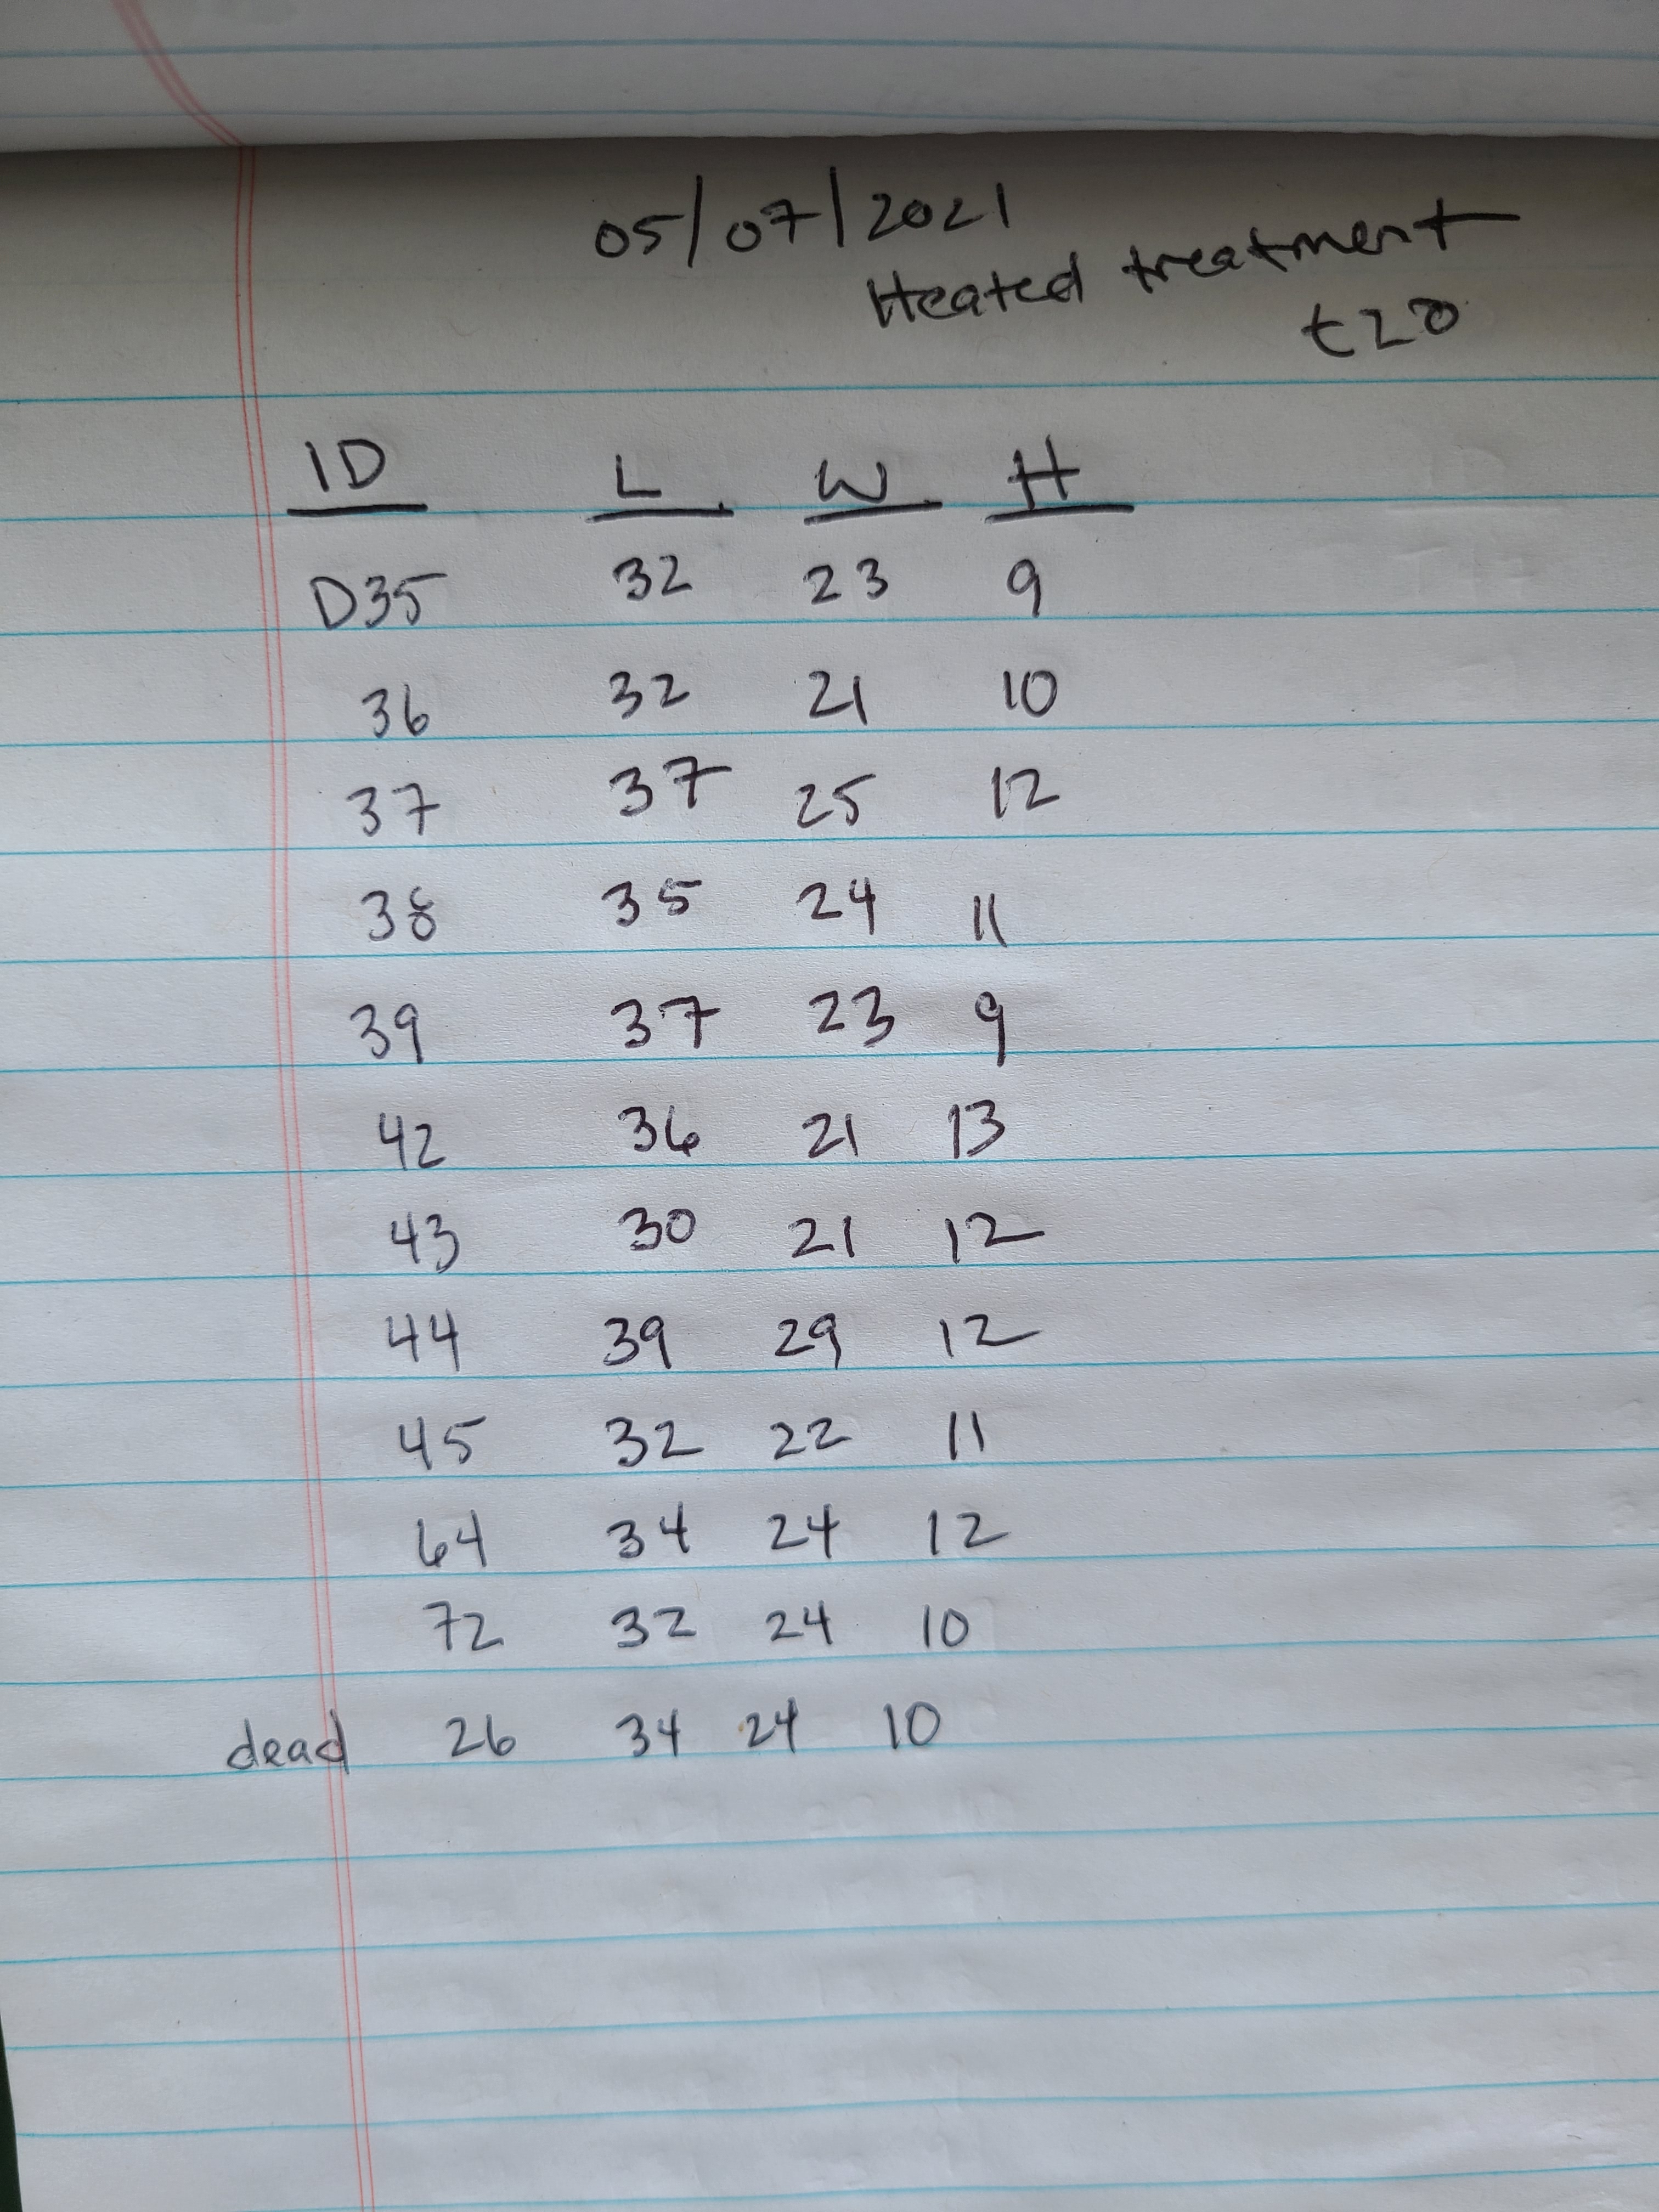 05/07/2021
Heated treatment
t20
ID L W H
D35 32 23 9
36 32 21 10
37 37 25 12
38 35 24 11
39 37 23 9
42 36 21 13
43 30 21 12
44 39 29 12
45 32 22 11
64 34 24 12
72 32 24 10
dead 26 34 24 10